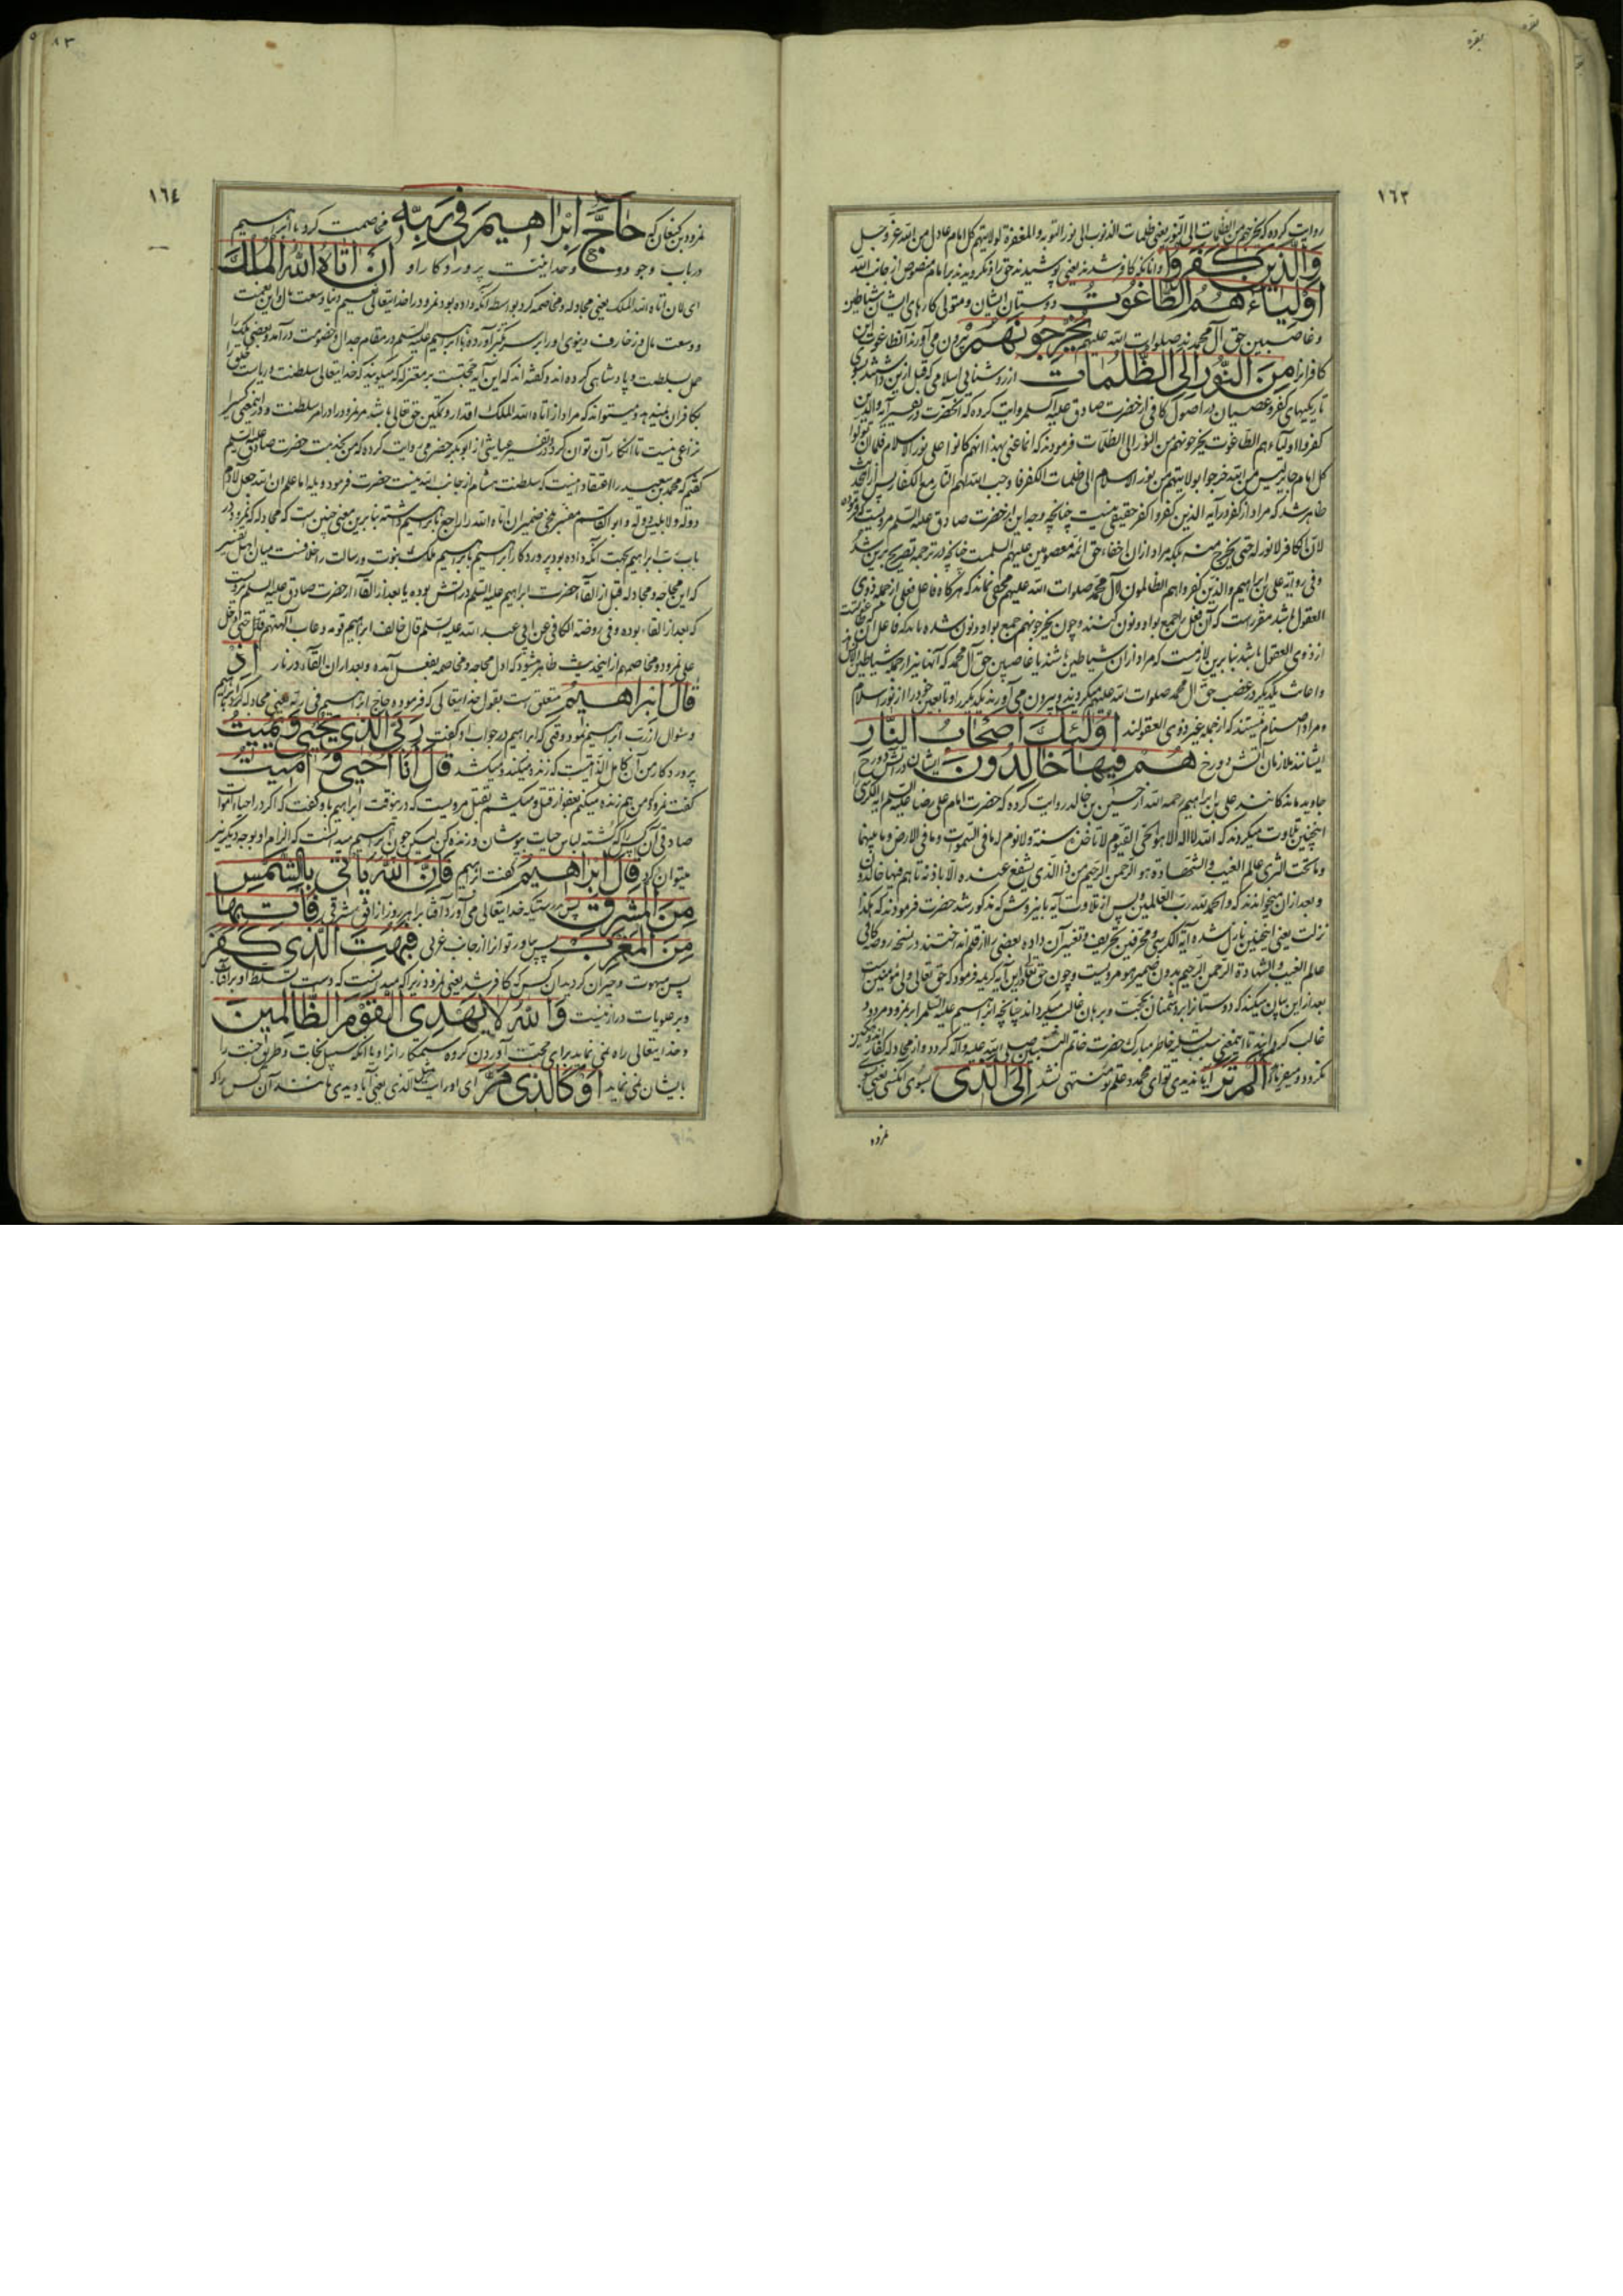 بقره
بقره
١٦٣
روایت کرده که یخرجهم من الظلمات الی النور یعنی ظلمات الذنوب الی نور التوبه و المغفرة لولایتهم کل امام عادل من الله عز و جل
وَالَّذِينَ كَفَرُوا و انانکه کافر شدند یعنی پوشیدند حق را و نگرویدند بر امام منصوص از جانب الله
أَوْلِيَاءُهُمُ الطَّاغُوتُ دوستان ایشان و متولی کارهای ایشان شیاطین
و غاصبین حق آل محمدند صلوات الله علیهم يُخْرِجُونَهُمْ بیرون می آورند آن طاغوت این
کافران را مِنَ النُّورِ إِلَى الظُّلُمَاتِ از روشنایی اسلامی که قبل ازین داشتند بسوی
تاریکیهای کفر و عصیان در اصول کافی از حضرت صادق علیه السلم روایت کرده که آنحضرت در تفسیر آیه والذین
کفروا اولیاءهم الطاغوت یخرجونهم من النور الی الظلمات فرمودند که انما عنی بهذا انهم کانوا علی نور الاسلام فلما ان تولوا
کل امام جایر لیس من الله خرجوا بولایتهم من نور الاسلام الی ظلمات الکفر فاوجب الله لهم النار مع الکفار پس ازین حدیث
ظاهر شد که مراد از کفر در آیه الذین کفروا کفر حقیقی نیست چنانچه وجه این از حضرت صادق علیه السلم مرویست که فرموده
لان الکافر لا نور له حتی یخرج منه بلکه مراد ازان اخفاء حق ائمه معصومین علیهم السلمست چنانچه در ترجمه تصریح برین شد
و فی روایة علی بن ابراهیم والذین کفروا هم الظالمون لآل محمد صلوات الله علیهم مخفی نماند که هرگاه فاعل فعلی از جمله ذوی
العقول باشد مقررست که آن فعل را جمع بواو و نون کنند و چون یخرجونهم جمع بواو و نون شده باید که فاعل آن که طاغوتست
از ذوی العقول باشد بنابرین لازمست که مراد ازان شیاطین باشند یا غاصبین حق آل محمد که آنها نیز از جمله شیاطین الانس اند
و اعانت یکدیگر در غصب حق آل محمد صلوات الله علیهم میکردند و بیرون می آورند یکدیگر را و تابعین خود را از نور اسلام
و مراد اصنام نیستند که از جمله غیر ذوی العقولند أُولَئِكَ أَصْحَابُ النَّارِ
ایشانند ملازمان آتش دوزخ هُمْ فِيهَا خَالِدُونَ ایشان در آتش دوزخ
جاوید ماندگانند علی بن ابراهیم رحمه الله از حسین بن خالد روایت کرده که حضرت امام علی رضا علیه السلم آیة الکرسی را
اینچنین تلاوت میکردند که الله لا اله الا هو الحی القیوم لا تاخذه سنة و لا نوم له ما فی السموات و ما فی الارض و ما بینهما
و ما تحت الثری عالم الغیب و الشهادة هو الرحمن الرحیم من ذا الذی یشفع عنده الا باذنه تا هم فیها خالدون
و بعد ازان میخواندند که والحمد لله رب العالمین و پس از تلاوت آیه باین روش که مذکور شد حضرت فرمودند که هکذا
نزلت یعنی اینچنین نازل شده آیة الکرسی و محرفین تحریف و تغییر آن داده بعضی را از قلم انداختند در نسخه روضه کافی
عالم الغیب و الشهادة الرحمن الرحیم بدون ضمیر هو مرویست و چون حق تعالی درین آیه کریمه فرمود که حق تعالی ولی مؤمنین است
بعد ازین بیان میکند که دوستانرا بر دشمنان بحجت و برهان غالب میگرداند چنانچه ابراهیم علیه السلم را بر نمرود مردود
غالب گردانید تا اینمعنی سبب تسلیه خاطر مبارک حضرت خاتم النبیین صلی الله علیه و آله گردد و از مجادله کفار
نگردد و میفرماید أَلَمْ تَرَ آیا ندیدی تو ای محمد و علم تو منتهی نشد إِلَى الَّذِي بسوی آنکسی یعنی
نمرود
٨٣
١٦٤
نمرود بن کنعان که حَاجَّ إِبْرَاهِيمَ فِي رَبِّهِ مخاصمت کرد با ابراهیم
در باب وجود و وحدانیت پروردگار او أَنْ آتَاهُ اللَّهُ الْمُلْكَ
ای لان اتاه الله الملک یعنی مجادله و مخاصمه کرد بواسطه آنکه داده بود نمرود را خدایتعالی نعیم دنیا و سعت مال و این نعمت
و وسعت مال و زخارف دنیوی او را بر سر کبر آورده با ابراهیم علیه السلم در مقام جدال و خصومت درآمد و بعضی ملک را
حمل بسلطنت و پادشاهی کرده اند و گفته اند که این آیه حجتست بر معتزله که میگویند که خدایتعالی سلطنت و ریاست خلق را
بکافران نمیدهد و میتواند که مراد از اتاه الله الملک اقدار و تمکین حق تعالی باشد مر نمرود را در امر سلطنت و درینمعنی کسی را
نزاعی نیست تا انکار آن توان کرد و در تفسیر عیاشی از ابوبکر حضرمی روایت کرده که من بخدمت حضرت صادق علیه السلم
گفتم که محمد بن سعید را اعتقاد اینست که سلطنت بنی هاشم از جانب الله نیست حضرت فرمود ویله اما علم ان الله جعل لآدم
دولة و لابلیس دولة و ابوالقاسم مفسر بلخی ضمیر ان اتاه الله را راجع بابراهیم داشته بنابرین معنی چنین است که مجادله که نمرود در
باب رب ابراهیم بجهت آنکه داده بود پروردگار ابراهیم بابراهیم ملک نبوت و رسالت را خلافست میان اهل تفسیر
که این محاجه و مجادله قبل از القاء حضرت ابراهیم علیه السلم در آتش بوده یا بعد از القاء از حضرت صادق علیه السلم مرویست
که بعد از القاء بوده و فی روضة الکافی عن ابی عبد الله علیه السلم قال خالف ابراهیم قومه و عاب آلهتهم حتی ادخل
علی نمرود و مخاصمهم ازینحدیث ظاهر میشود که اول محاجه و مخاصمه بفعل آمده و بعد ازان القاء در نار إِذْ
قَالَ إِبْرَاهِيمُ متعلق است بقول خدایتعالی که فرموده حاج ابراهیم فی ربه یعنی مجادله کرد بابراهیم
و سئوال از رب ابراهیم نمود وقتی که ابراهیم در جواب او گفت رَبِّيَ الَّذِي يُحْيِي وَيُمِيتُ
پروردگار من آن کامل الذاتیست که زنده میکند و میکشد قَالَ أَنَا أُحْيِي وَأُمِيتُ
گفت نمرود که من هم زنده میکنم بعفو از قتل و میکشم بقتل مرویست که درینوقت ابراهیم باو گفت که اگر در احیاء اموات
صادقی آن کس را که کشته لباس حیات پوشان و زنده کن لیکن چون ابراهیم میدانست که الزام او بوجه دیگر نیز
میتوان کرد قَالَ إِبْرَاهِيمُ گفت ابراهیم فَإِنَّ اللَّهَ يَأْتِي بِالشَّمْسِ
مِنَ الْمَشْرِقِ پس بدرستیکه خدایتعالی می آورد آفتاب را هر روز از افق شرقی فَأْتِ بِهَا
مِنَ الْمَغْرِبِ پس بیاور تو انرا از جانب غربی فَبُهِتَ الَّذِي كَفَرَ
پس مبهوت و حیران گردید آن کس که کافر شد یعنی نمرود زیرا که میدانست که دست تسلط او بر آفتاب
و بر علویات دراز نیست وَاللَّهُ لَا يَهْدِي الْقَوْمَ الظَّالِمِينَ
و خدایتعالی راه نمی نماید برای حجت آوردن گروه ستمکارانرا و یا آنکه سبیل نجات و طریق جنت را
بایشان نمی نماید أَوْ كَالَّذِي مَرَّ ای او رایت مثل الذی یعنی آیا دیدی مانند آن کس را که